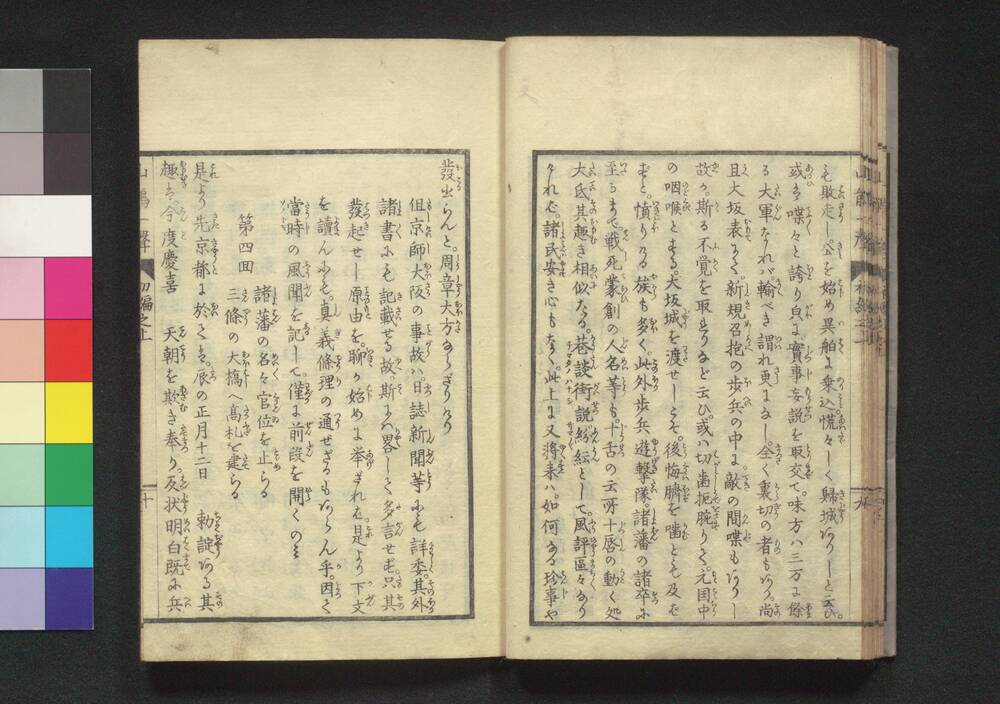 も敗走し公を始め異船に乗込慌々しく歸城ありしと云ひ。
或は喋々と誇り貞に實事妄説を取交て。味方ハ三万に餘
る大軍なれバ。輸べき謂れ更になし。全く裏切の者もあり。尚
且大坂表にて。新規召抱の歩兵の中に。敵の間喋もありし
故か。斯る不覚を取りしなど云ひ。或ハ切歯扼腕りて。元因中
の咽喉ともなる。大坂城を渡せしこそ。後悔臍を噛とも及ば
ずと。憤りなる族も多く。此外歩兵遊撃隊。諸藩の諸卒に
至るまで戦死蒙創の人名等も十舌の云所十唇の動く処
大氐其趣き相似たる。巷談街説紛紜として。風評區々なり
けれバ。諸民安き心もなく。此上に又將来ハ。如何なる珍事や
發出らんと。周章大方ならざりけり
但京師大阪の事故ハ。日誌新聞等にも詳委。其外
諸書にも記載せる故斯にハ畧して多言せず。只其
發起せし原由を。聊か始めに举ざれバ。是より下文
を讀んにも。真義條理の通ぜざるもあらん乎。因て
當時の風聞を記して。僅に前段を開くのミ
第四囬
諸藩の名々官位を止らる
三條の大橋へ高札を建らる
是より先京都に於ては。辰の正月十二日　勅諚ある其
趣は。今度慶喜　天朝を欺き奉り。反状明白既に兵
初編之上
十
九